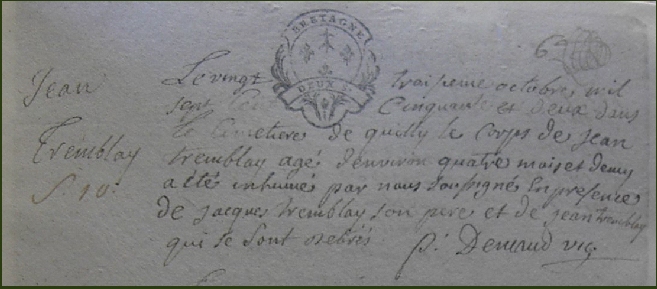 BRETAGNE
DEUX S.
6
Jean
Tremblay
Le vingt troisieme octobre mil
sept cent cinquante et deux dans
le cimetiere de quilly le corps de jean
tremblay agé d'environ quatre mois et demy
a eté inhumé par nous soussigné En presence
de jacques tremblay son pere et de jean tremblay
qui se sont